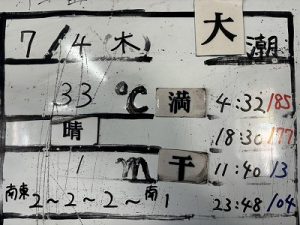 7/4 木 大 潮
33 ℃ 満 4:32 185
晴 18:30 177
1 m 干 11:40 13
南東2～2～2～南1 23:48 104